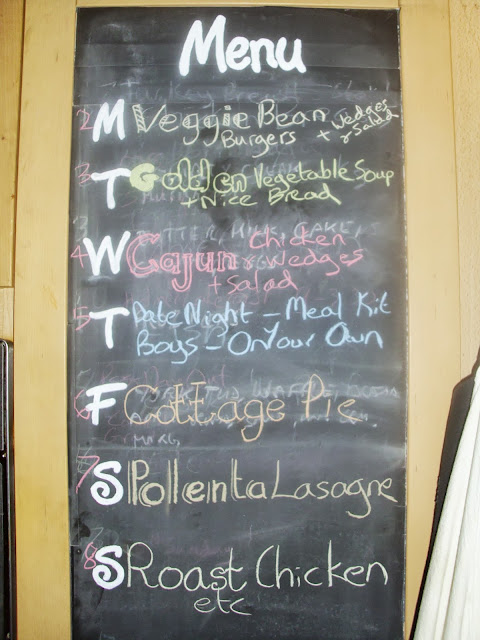 Menu
2 M Veggie Bean Wedges
Burgers + & Salad
3 T Golden Vegetable Soup
+ Nice Bread
4 W Cajun Chicken
& Wedges
+ Salad
5 T Date Night - Meal Kit
Boys - On Your Own
6 F Cottage Pie
7 S Pollenta Lasagne
8 S Roast Chicken
etc